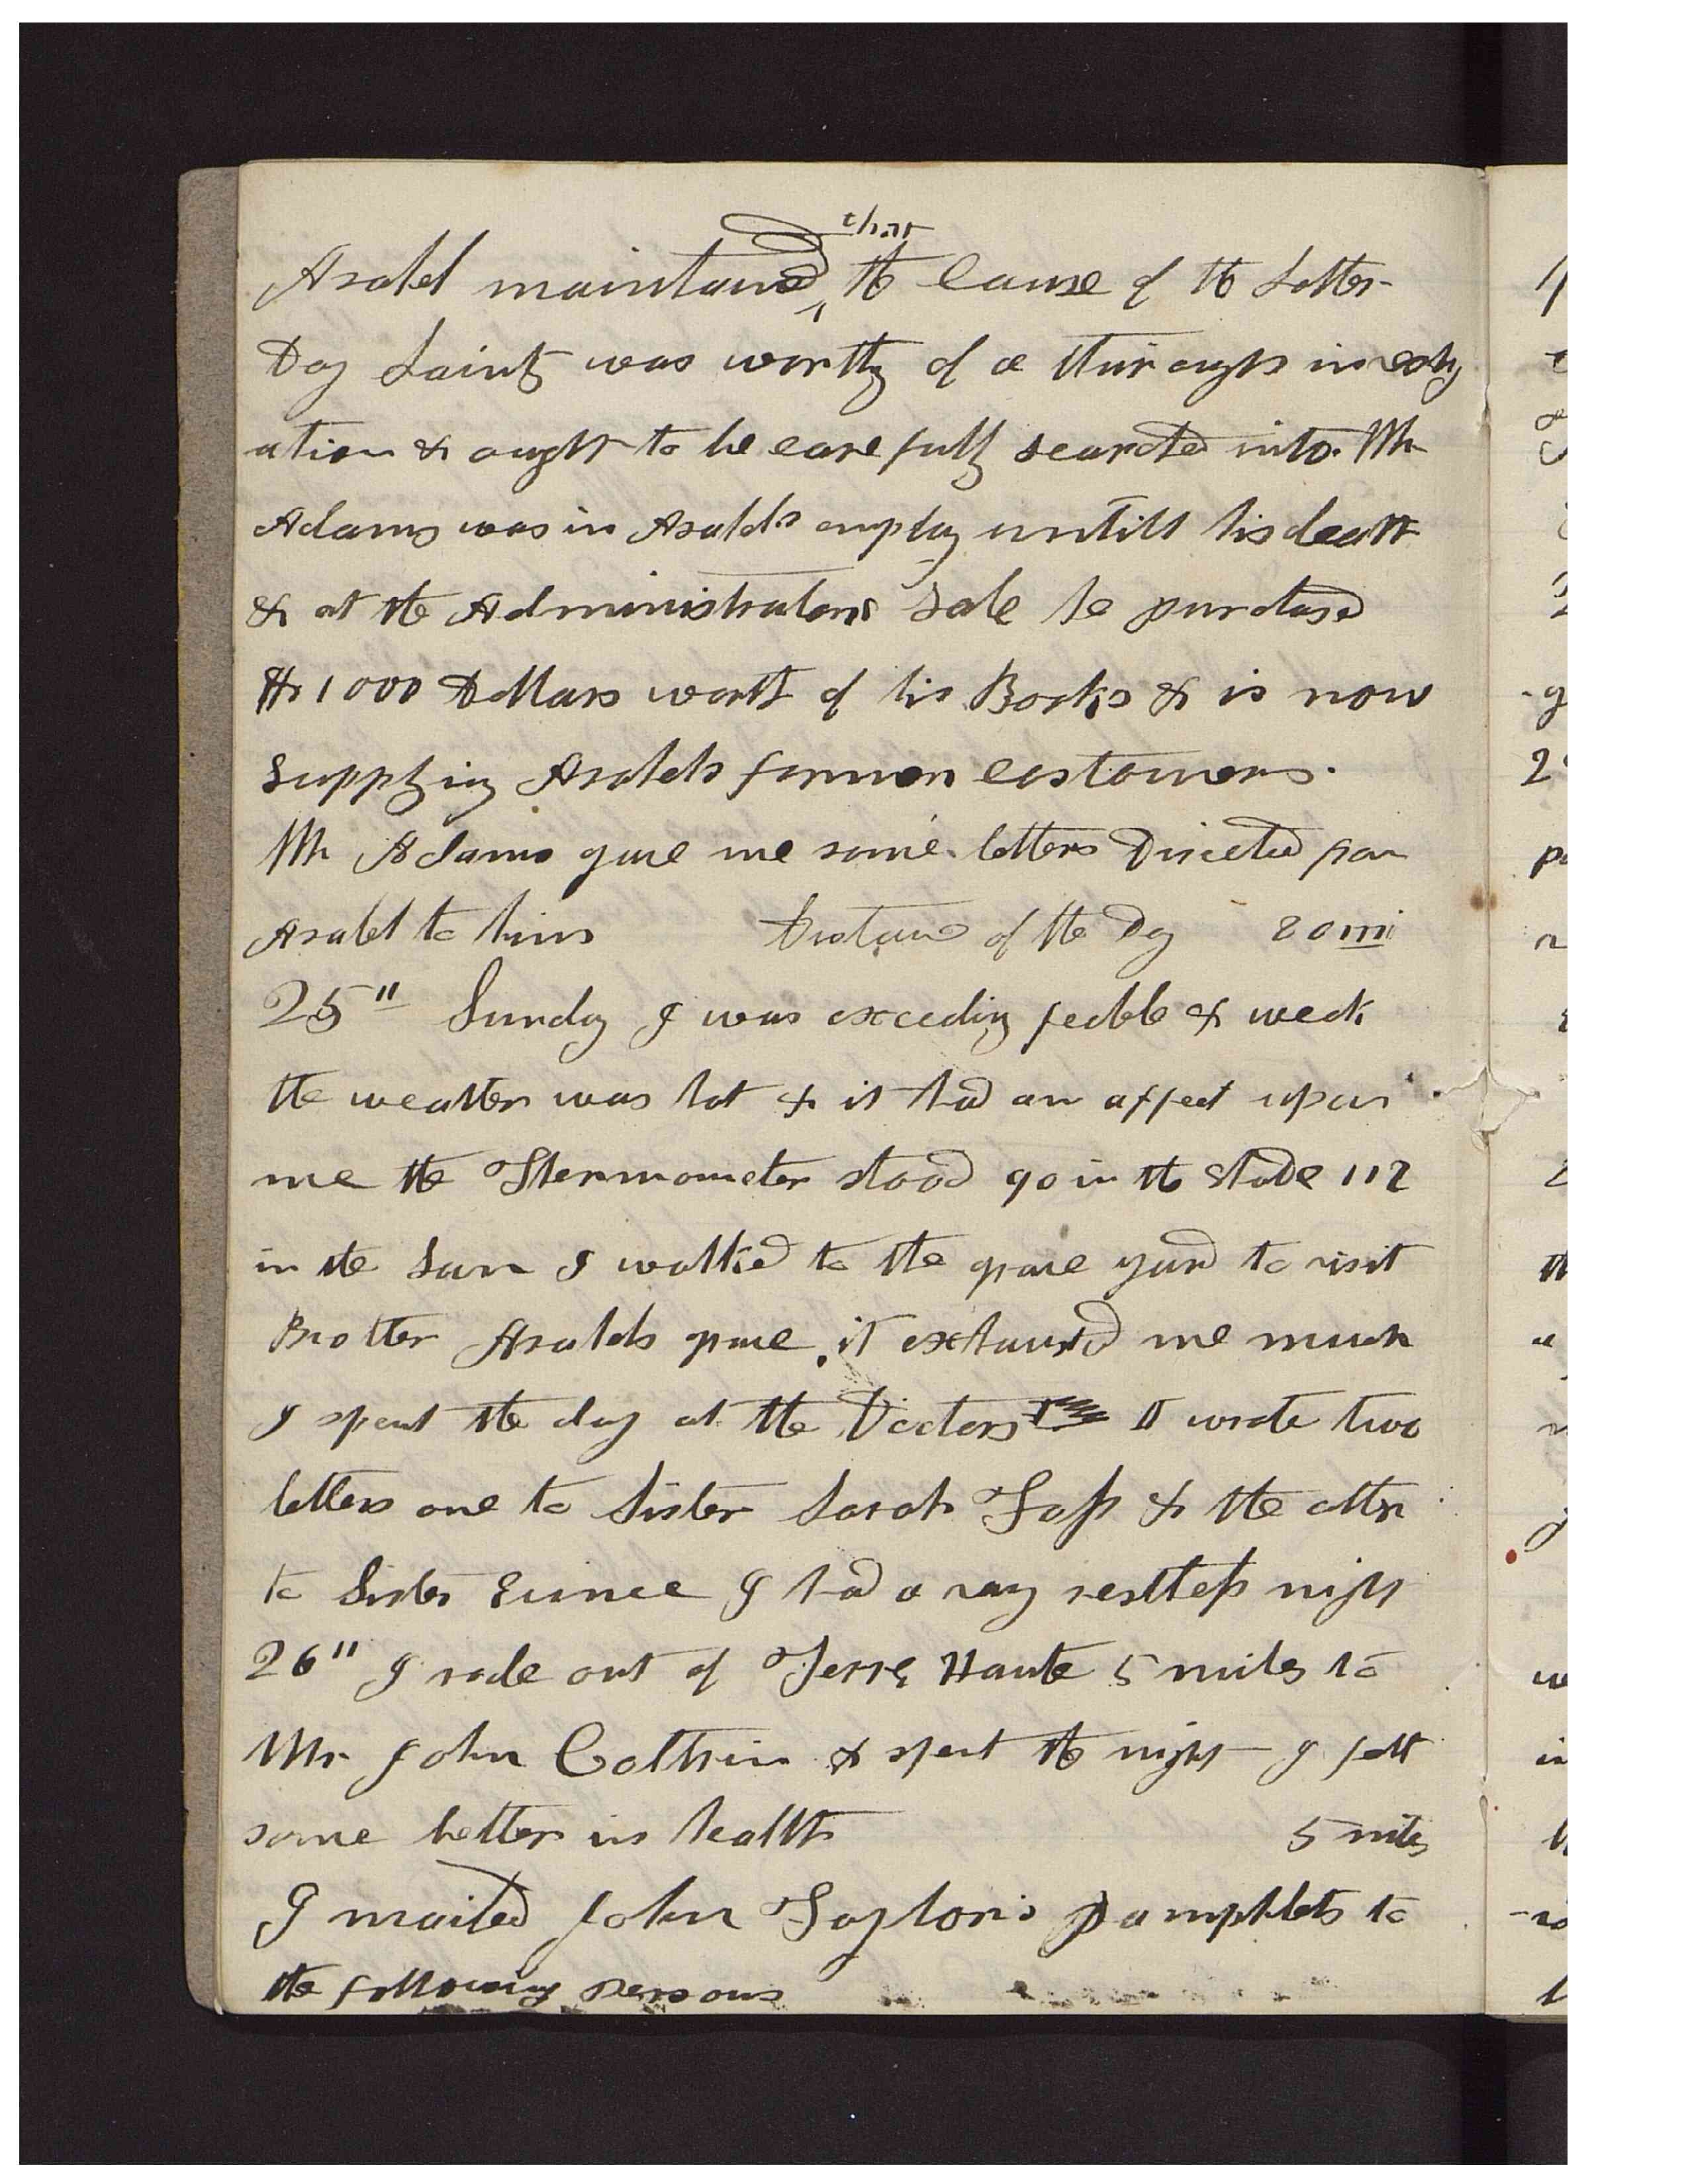 Asahel maintained that the cause of the Latter
Day Saints was worthy of a thurough investig
ation & ought to be carefully searched into. Mr
Adams was in Asahels employ untill his death
& at the Administrators Sale he purchased
$1000 Dollars worth of his Books & is now
supplying Asahels former costomers.
Mr Adams gave me some letters Directed from
Asahel to him Distance of the Day 20 mi
25" Sunday I was exceding feeble & week
the weather was hot & it had an affect upon
me the Thermometer stood 90 in the Shade 112
in the Sun I walked to the grave yard to visit
Brother Asahels grave. it exhausted me much
I spent the day at the Doctors I wrote two
letters one to Sister Sarah Foss & the other
to Sister Eunice I had a very restless night
26" I rode out of Terre Haute 5 miles to
Mr John Coltrin & spent the night I felt
some better in health 5 miles
I mailed John Taylor's pamphlets to
the following persons